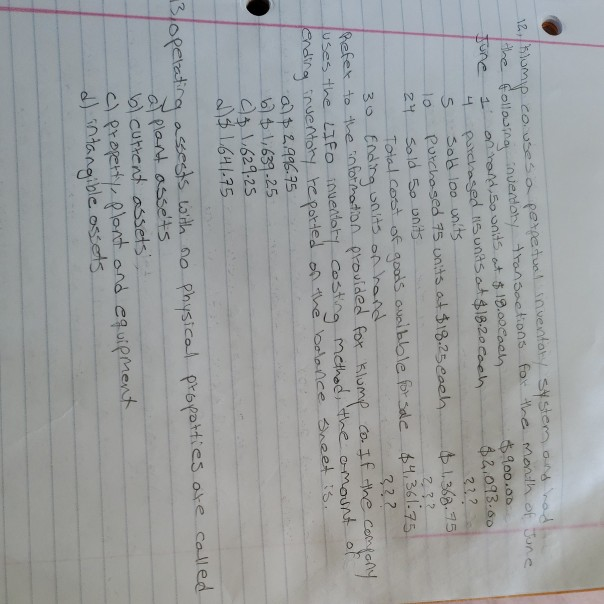 12. Klump co. uses a perpetual inventory system and had
the following inventory transactions for the month of June
June 1 on hand, 50 units at $18.00 each $900.00
4 purchased 115 units at $18.20 each $2,093.00
5 Sold 100 units ???
10 purchased 75 units at $18.25 each $1,368.75
24 Sold 50 units ???
Total cost of goods available for sale $4,361.75
30 Ending units on hand ???
Refer to the information provided for Klump co. If the company
uses the LIFO inventory costing method, the amount of
ending inventory reported on the balance sheet is.
a) $2,996.75
b) $1,639.25
c) $1,629.25
d) $1,641.75
13. operating assests with no physical proparties are called
a) plant assets
b) current assets
c) property, plant and equipment
d) intangible assets